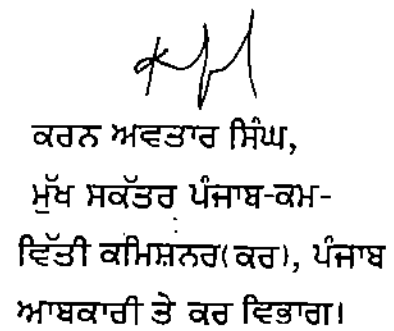 ਕਰਨ ਅਵਤਾਰ ਸਿੰਘ,
ਮੁੱਖ ਸਕੱਤਰ ਪੰਜਾਬ-ਕਮ-
ਵਿੱਤੀ ਕਮਿਸ਼ਨਰ(ਕਰ), ਪੰਜਾਬ
ਆਬਕਾਰੀ ਤੇ ਕਰ ਵਿਭਾਗ।